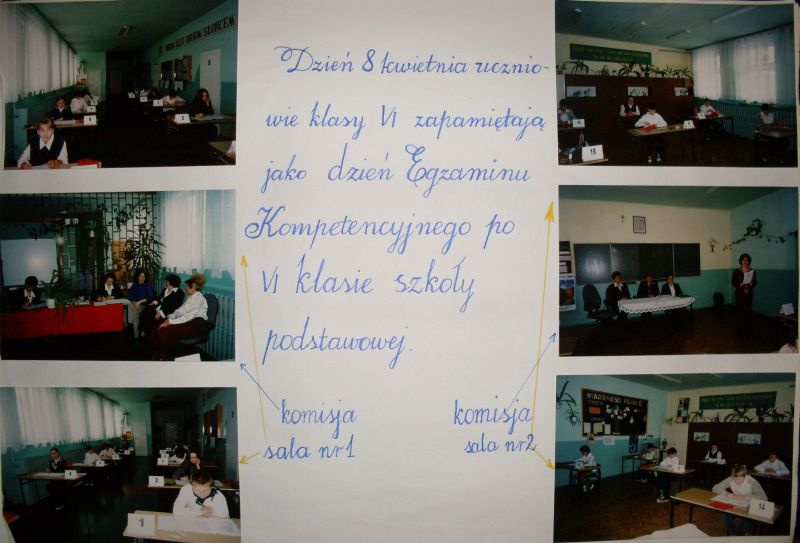 Dzień 8 kwietnia ucznio-
wie klasy VI zapamiętają
jako dzień Egzaminu
Kompetencyjnego po
VI klasie szkoły
podstawowej.
komisja
sala nr 1
komisja
sala nr 2
SŁOŃCEM
15
1
14